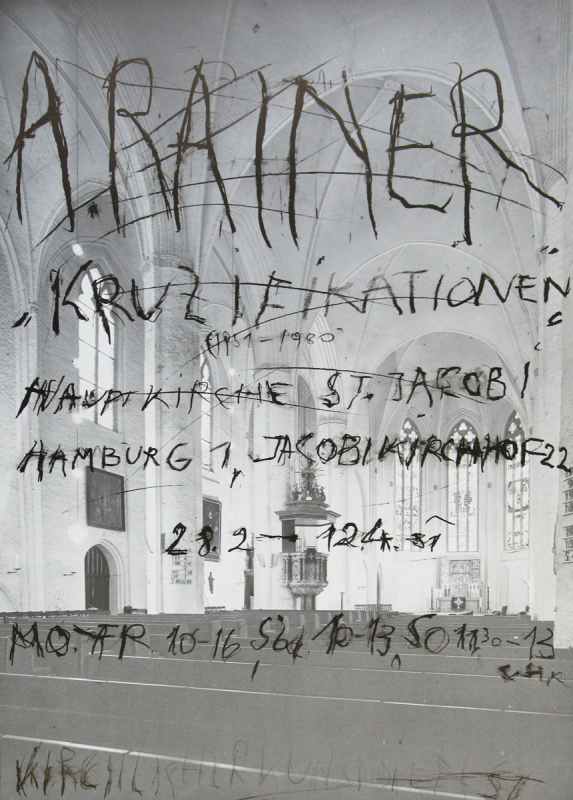 A. RAINER
„KRUZIFIKATIONEN"
(1951-1980)
HAUPTKIRCHE ST. JAKOBI
HAMBURG 1, JACOBIKIRCHHOF 22
28.2 – 12.4. 81
MO. FR. 10-16, Sa. 10-13, SO 11³⁰-13
UHR